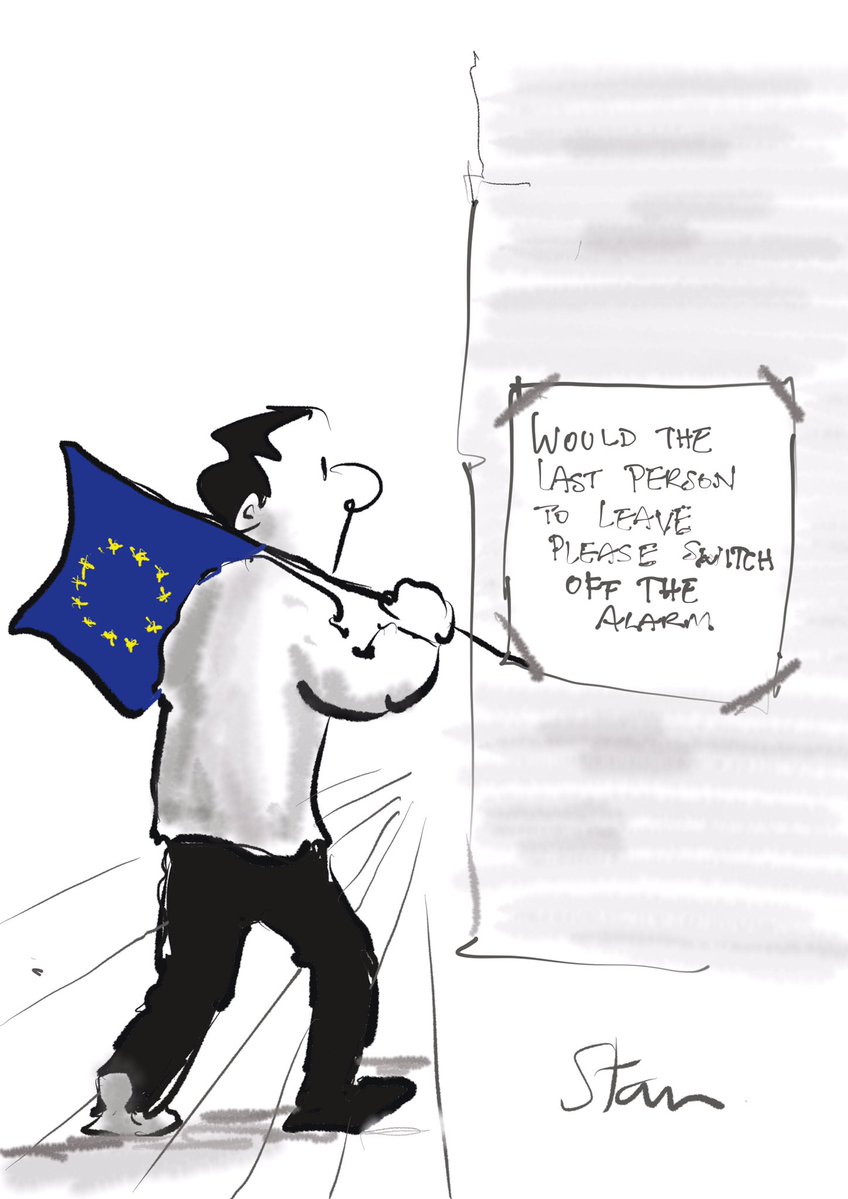 WOULD THE
LAST PERSON
TO LEAVE
PLEASE SWITCH
OFF THE
ALARM
Stan